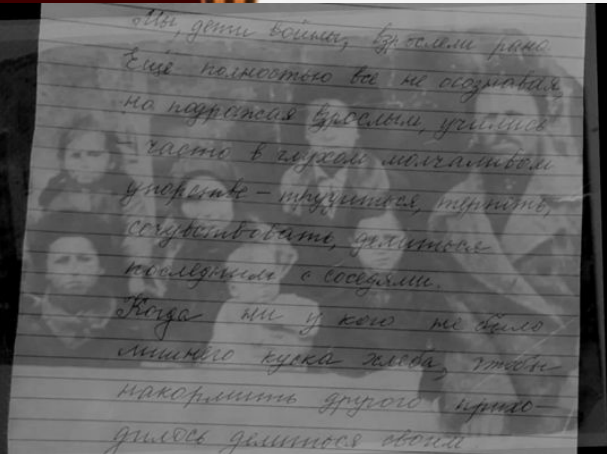 Мы, дети войны, взрослели рано.
Ещё полностью все не осознавая,
но подражая взрослым, учились
– часто в глухом молчаливом
упорстве – трудиться, терпеть,
сочувствовать, делиться
последним с соседями.
Когда ни у кого не было
лишнего куска хлеба, чтобы
накормить другого прихо-
дилось делиться своим